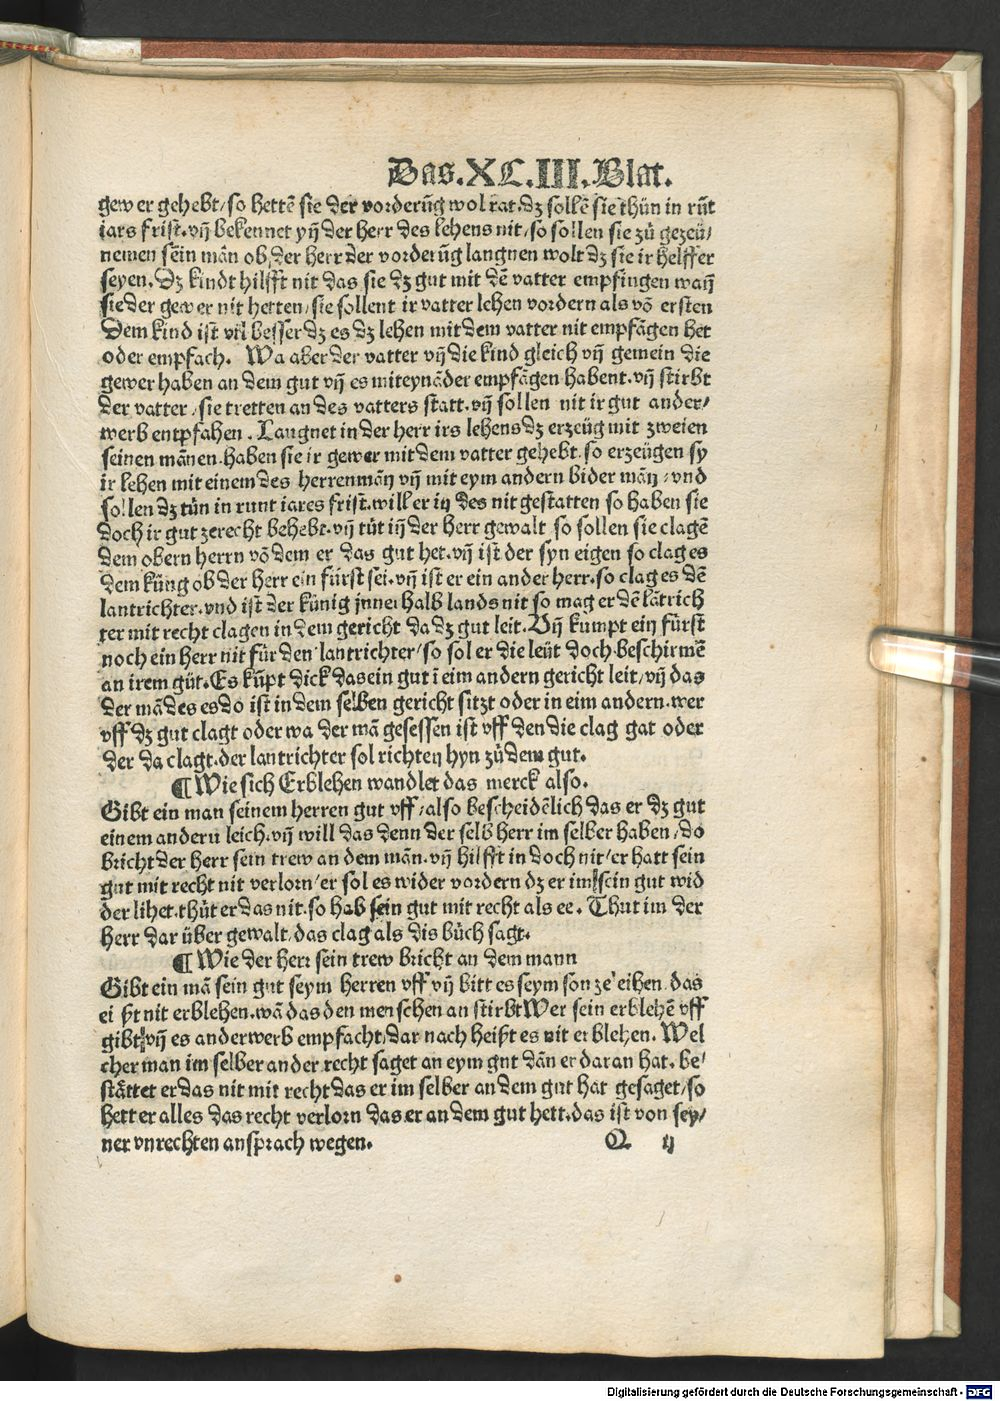 Das.XC.III.Blat.
gewer gehebt/so hettē sie der vorderūg wol rat.dz sollē sie thůn in rūt
iars frist.vñ bekennet yñ der herr des lehens nit/so sollen sie zů gezeü/
nemen sein mān ob der herr der vorderūg langnen wolt dz sie ir helffer
seyen. Dz kindt hilfft nit das sie dz gut mit dē vatter empfingen wañ
sie der gewer nit hetten/sie sollent ir vatter lehen vordern als vō ersten
Dem kind ist vil besser dz es dz lehen mit dem vatter nit empfāgen het
oder empfach. Wa aber der vatter vñ die kind gleich vñ gemein die
gewer haben an dem gut vñ es miteynāder empfāgen habent.vñ stirbt
der vatter/sie tretten an des vatters statt.vñ sollen nit ir gut ander/
werb entpfahen. Laugnet in der herr irs lehens dz erzeüg mit zweien
seinen mānen.haben sie ir gewer mit dem vatter gehebt.so erzeügen sy
ir lehen mit einem des herren mañ vñ mit eym andern bider mañ/vnd
sollen dz tün in runt iares frist.will er iñ des nit gestatten so haben sie
doch ir gut zerecht behebt.vñ tůt iñ der herr gewalt so sollen sie clagē
dem obern herrn vō dem er das gut het.vñ ist der syn eigen so clag es
dem küng ob der herr ein fürst sei.vñ ist er ein ander herr.so clag es dē
lantrichter.vnd ist der künig jnnerhalb lands nit so mag er dē lātrich
ter mit recht clagen in dem gericht da dz gut leit.Vñ kumpt eiñ fürst
noch ein herr nit für den lantrichter/so sol er die leüt doch beschirmē
an irem gůt.Es kūpt dick das ein gut ī eim andern gericht leit/vñ das
der mā des es do ist in dem selben gericht sitzt oder in eim andern.wer
vff dz gut clagt oder wa der mā gesessen ist vff den die clag gat oder
der da clagt.der lantrichter sol richten hyn zů dem gut.
¶ Wie sich Erblehen wandlet das merck also.
Gibt ein man seinem herren gut vff/also bescheidēlich das er dz gut
einem andern leich.vñ will das denn der selb herr im selber haben/do
bricht der herr sein trew an dem mān.vñ hilfft in doch nit/er hatt sein
gut mit recht nit verlorn/er sol es wider vordern dz er im sein gut wid
der lihet.thůt er das nit.so hab sein gut mit recht als ee. Thut im der
herr dar über gewalt/das clag als dis bůch sagt.
¶ Wie der herr sein trew bricht an dem mann
Gibt ein mā sein gut seym herren vff vñ bitt es seym son ze eihen.das
ei ßt nit erblehen.wā das den menschen an stirbt Wer sein erblehē vff
gibt vñ es anderwerb empfacht/dar nach heißt es nit erblehen. Wel
cher man im selber ander recht saget an eym gut dān er daran hat.be/
stättet er das nit mit recht das er im selber an dem gut hat gesaget/so
hett er alles das recht verlorn das er an dem gut hett.das ist von sey/
ner vnrechten ansprach wegen.
Q ij
Digitalisierung gefördert durch die Deutsche Forschungsgemeinschaft - DFG